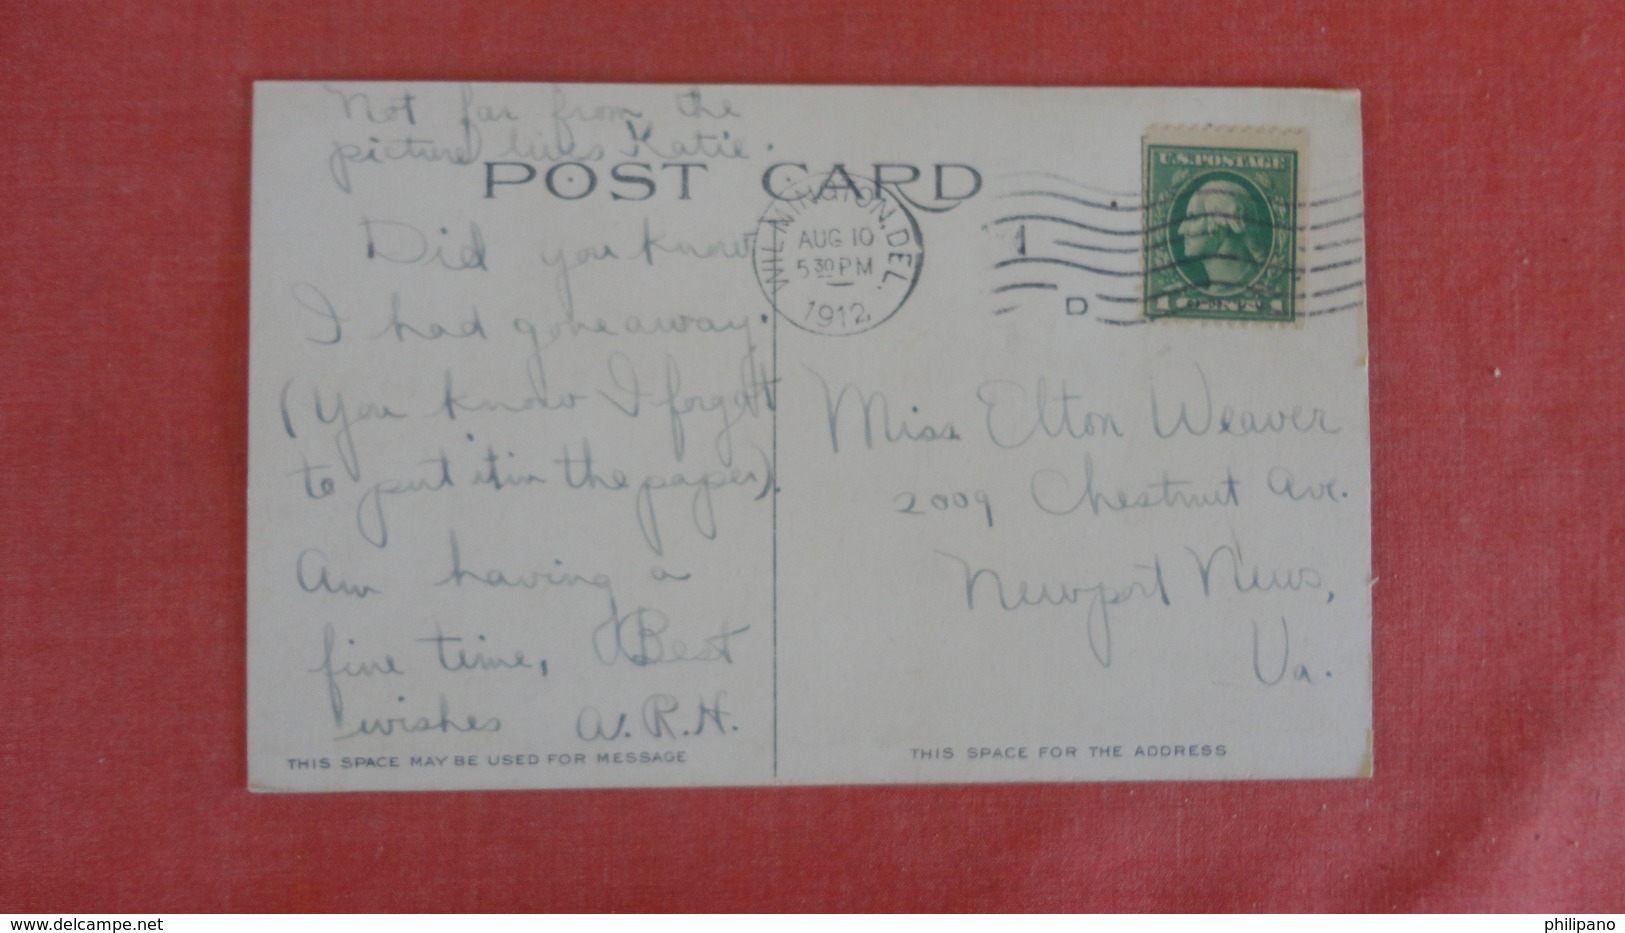 Not far from the
picture lives Katie.
POST CARD
Did you know
I had gone away.
(You know I forgot
to put it in the paper).
Am having a
fine time, Best
wishes A.R.H.
THIS SPACE MAY BE USED FOR MESSAGE
WILMINGTON, DEL.
AUG 10
5 30 PM
1912
D
U.S. POSTAGE
1 CENT 1
Miss Elton Weaver
2009 Chestnut Ave.
Newport News,
Va.
THIS SPACE FOR THE ADDRESS
www.delcampe.net
philipano